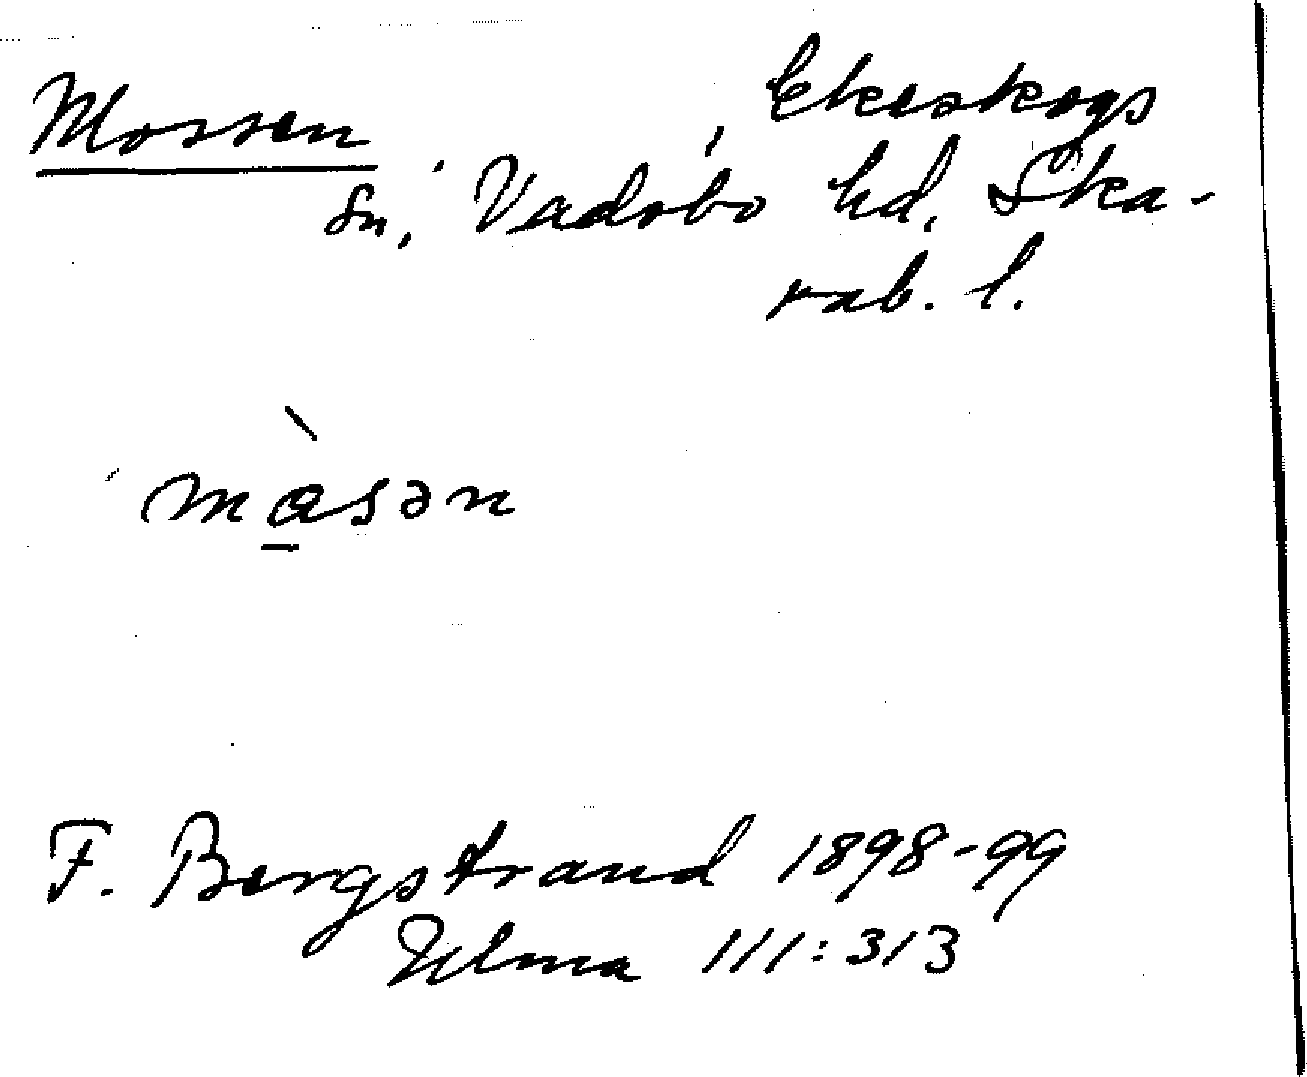 Mossen, Ekeskogs
sn, Vadsbo hd, Ska-
rab. l.
mò̱sən
F. Bergstrand 1898-99
Ulma 111:313